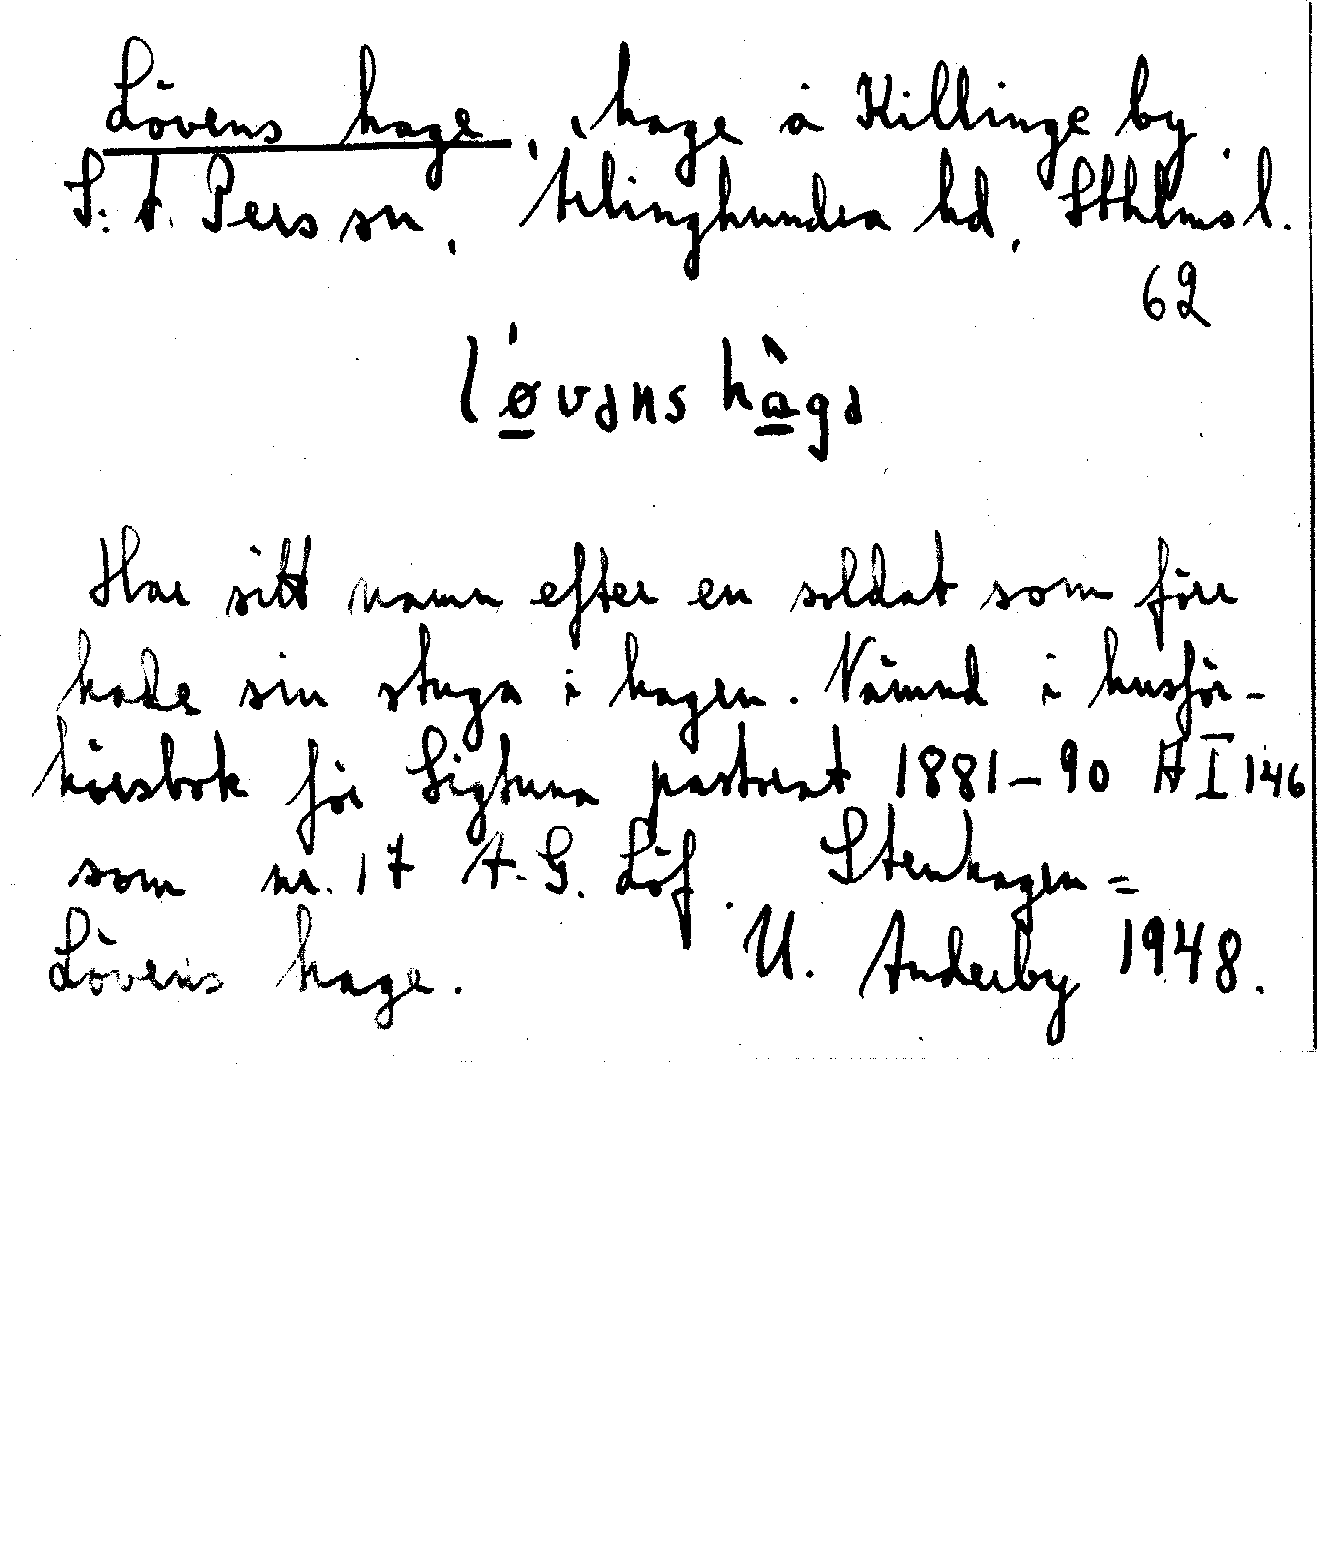 Lövens hage, hage å Killinge by,
S:t Pers sn, Ärlinghundra hd, Sthlms l.
62
løvəns hagə
Har sitt namn efter en soldat som förr
hade sin stuga i hagen. Nämnd i husför-
hörsbok för Sigtuna pastorat 1881-90 A I 146
som nr. 17 A. G. Löf. Stenhagen =
Lövens hage. U. Anderby 1948.